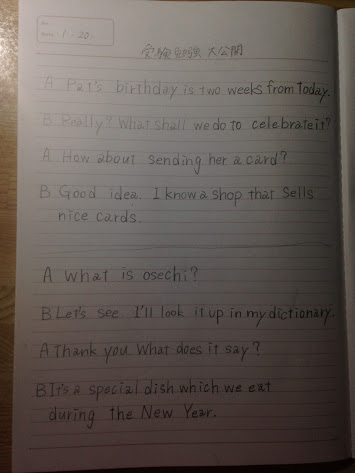 No.
Date 1・20・
受験勉強 大公開
A Pat's birthday is two weeks from today.
B Really? What shall we do to celebrate it?
A How about sending her a card?
B Good idea. I know a shop that sells
nice cards.
A What is osechi?
B Let's see. I'll look it up in my dictionary.
A Thank you. What does it say?
B It's a special dish which we eat
during the New Year.